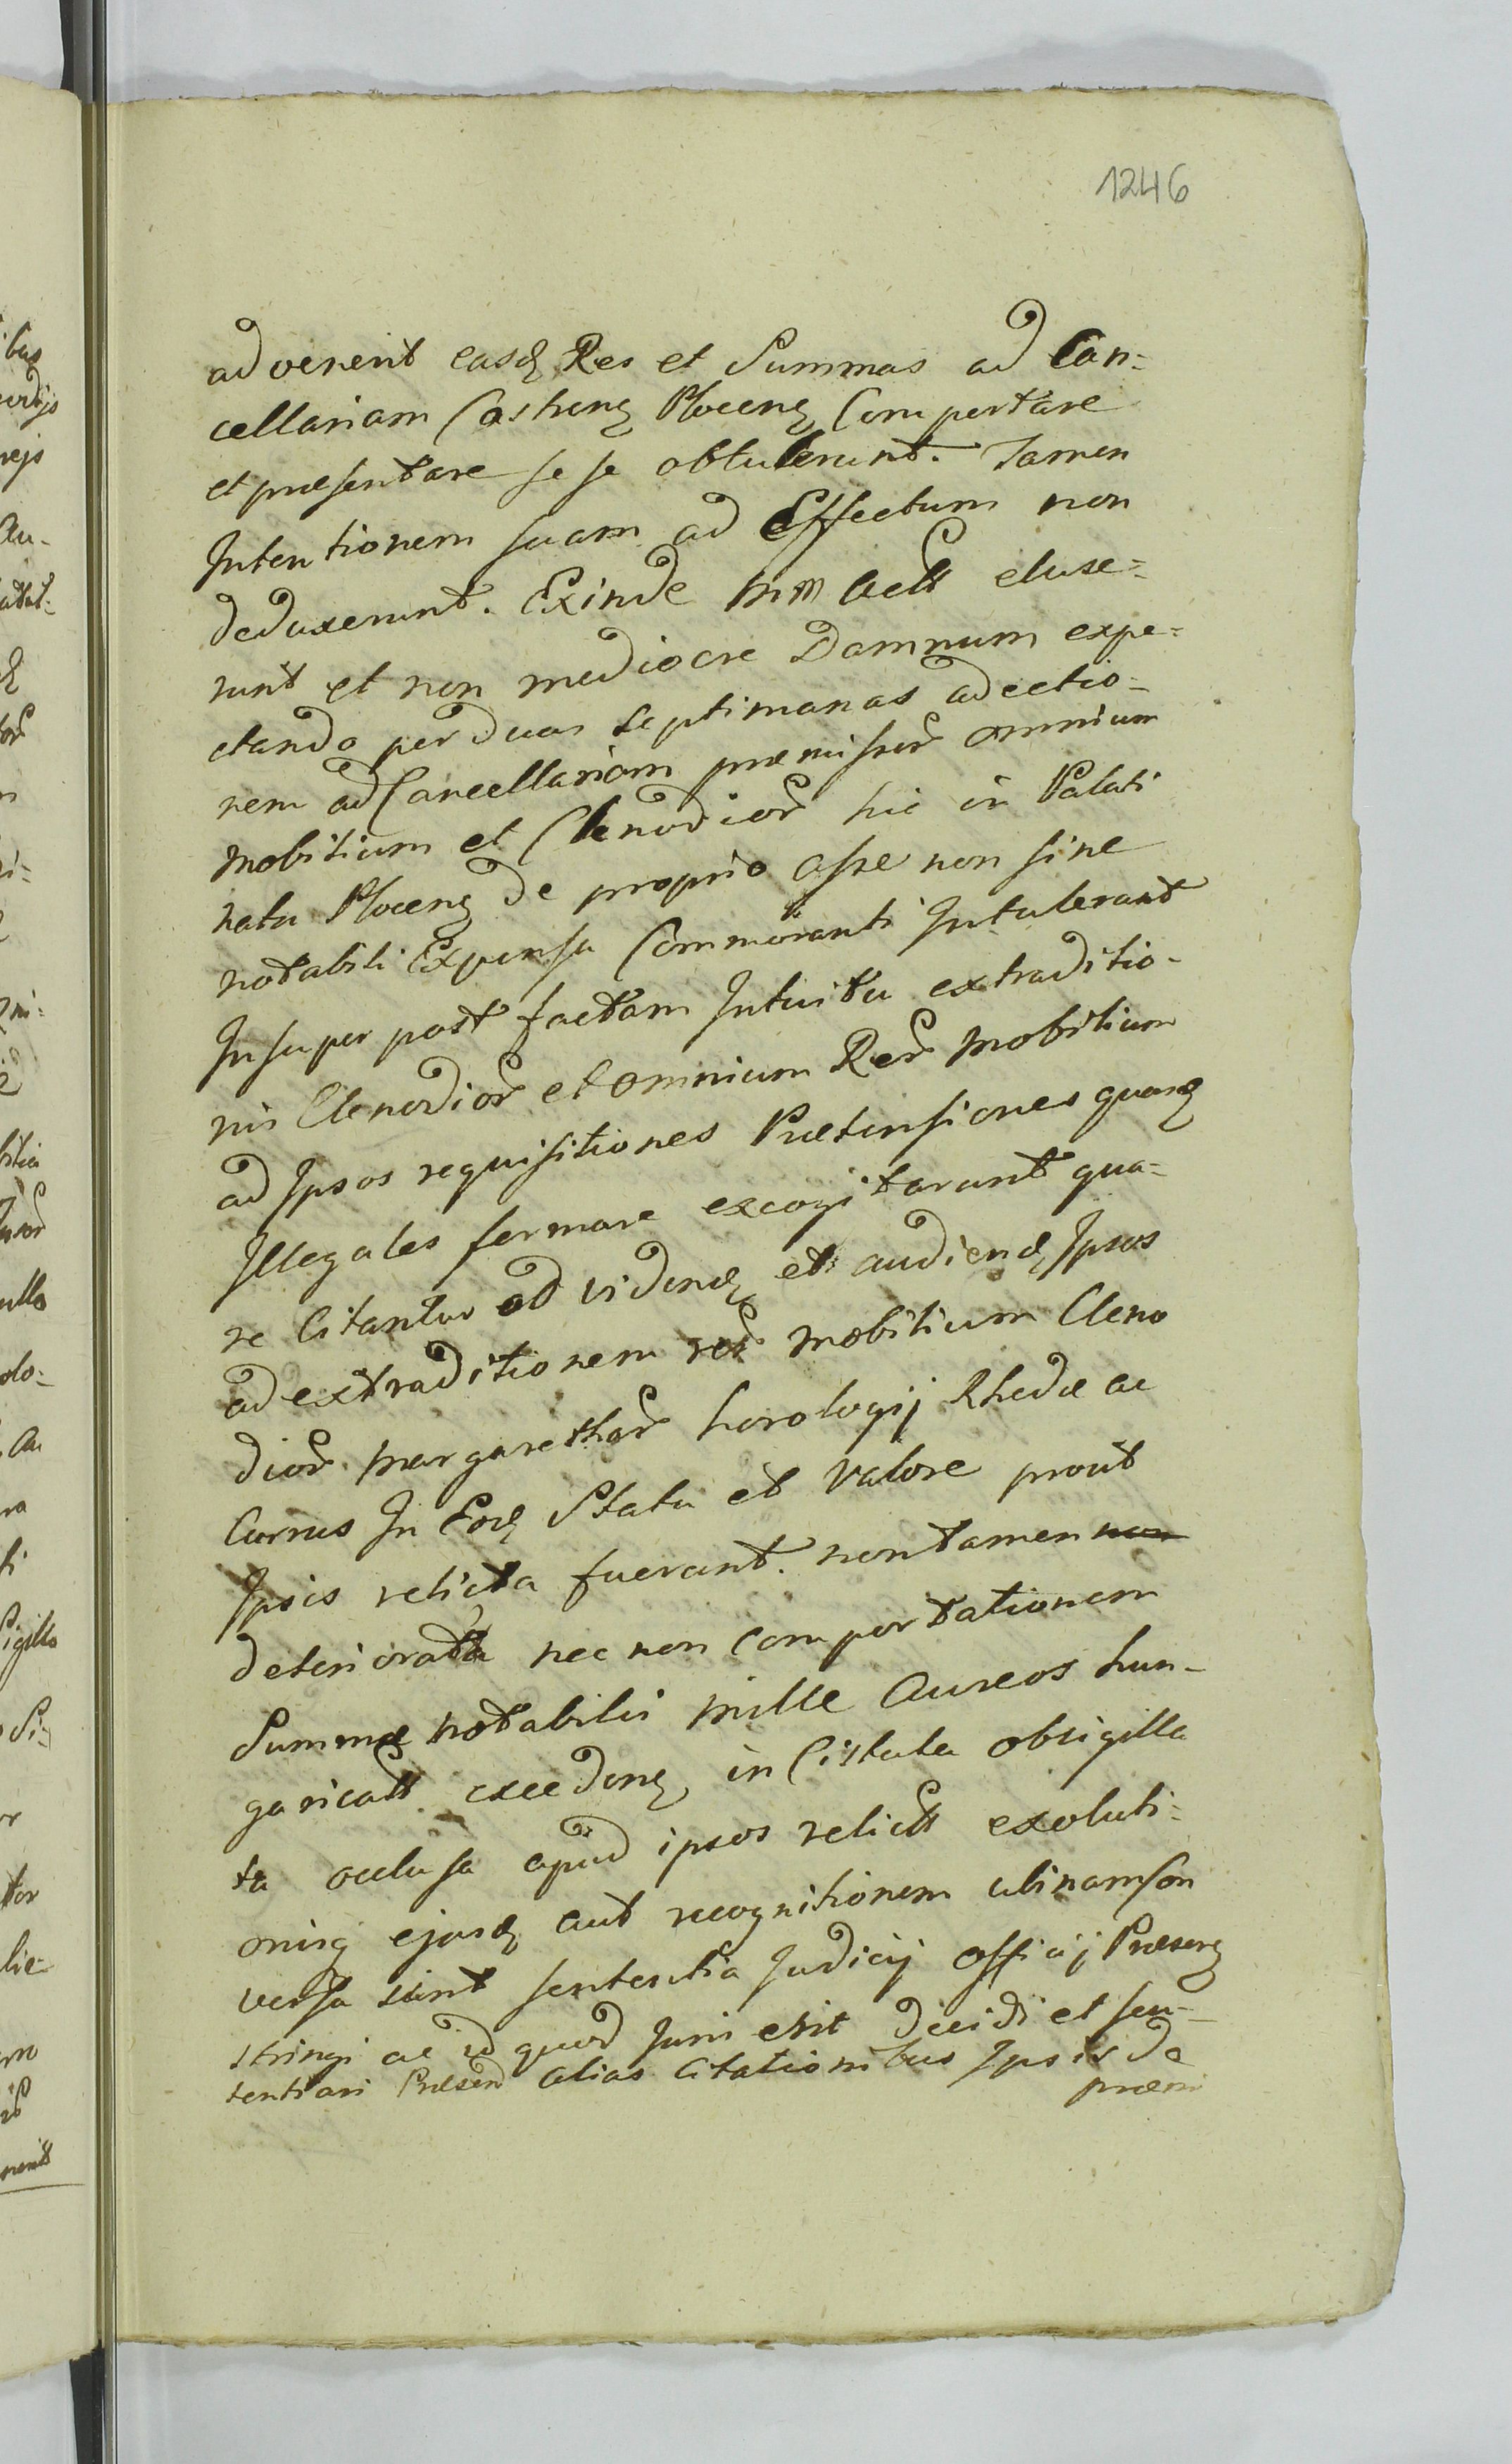 1246
advenerit easq Res et Summas ad Can=
cellariam Castrenq Plocenq Comportare
et præsentare se se obtulerunt. Tamen
Intentionem suam ad Effectum non
deduxerunt. Exinde Actt eluse=
runt et non mediocre Damnum expe=
ctando per duas Septimanas advectio=
nem ad Cancellariam præmissor omnium
Mobilium et Clenodior hic in Palati
natu Plocenq de proprio Asse non sine
notabili Expensa Commoranti Intulerant
Insuper post factam Intuitu extraditio-
nis Clenodior et omnium Rer Mobilium
ad Ipsos requisitiones Prætensiones quasq
Illegales formare excogitarunt qua=
re Citantur ad videndq et audiendq Ipsos
ad extraditionem rer Mobilium Cleno
dior Margarethar horologij Rhedæ ac
Currus In Eodq Statu et Valore prout
Ipsis relicta fuerant. non tamen non
deteriorata nec non comportationem
Summæ notabilis mille Aureos hun-
garicatt excedenq in Cistula obsigilla
ta occlusa apud ipsos relictt exoluti=
onisq ejusdq aut recognitionem ubinam con
versa sint sententia Judicij Officij Præsenq
stringi ac id quod Juri erit decidi et sen-
tentiari Præsend alias Citationibus Ipsis de
præmi